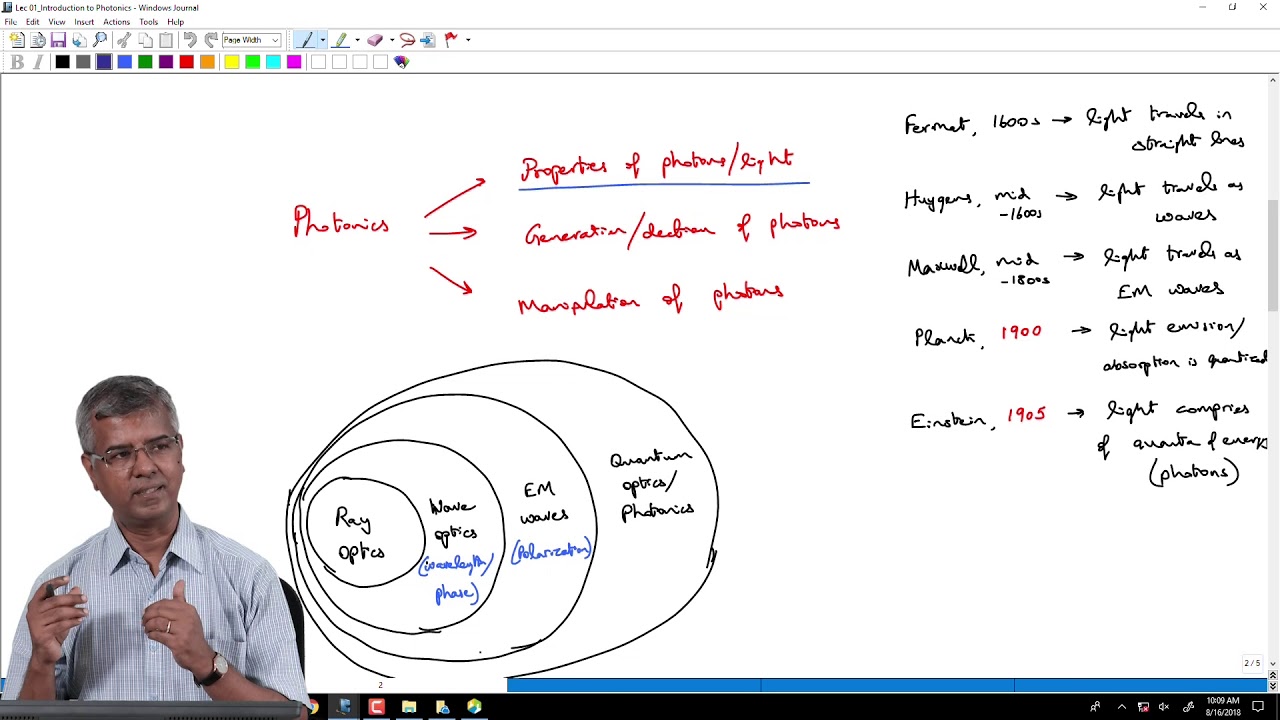 Lec 01_Introduction to Photonics - Windows Journal
File Edit View Insert Actions Tools Help
Page Width
B I
Photonics
Properties of photons/light
Generation/dection of photons
Manipulation of photons
Fermat, 1600s → light travels in
straight lines
Huygens, mid → light travels as
-1600s waves
Maxwell, mid → light travels as
-1800s EM waves
Planck, 1900 → light emission/
absorption is quantized
Einstein, 1905 → light compries
of quanta of energy
(photons)
Ray
optics
Wave
optics
(wavelength/
phase)
EM
waves
(Polarization)
Quantum
optics/
Photonics
2 / 5
2
10:09 AM
8/16/2018